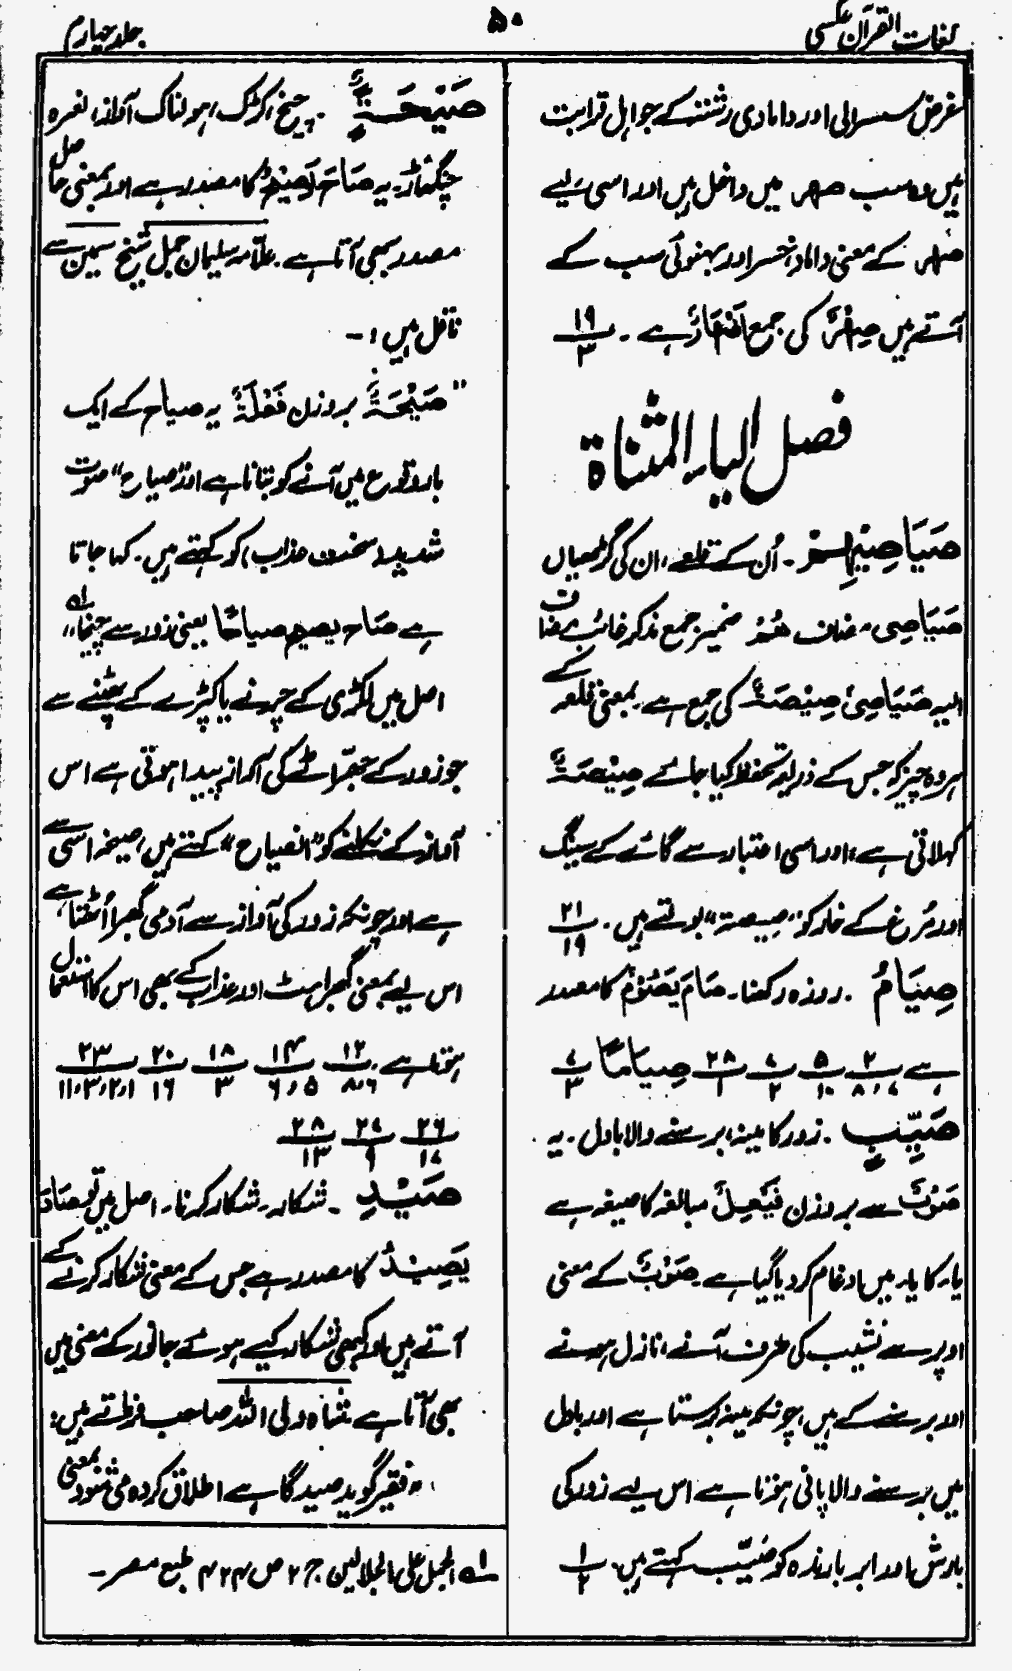 لغات القرآن عکسی
۵۰
جلد چہارم
غرض سسرالی اور دامادی رشتہ کے جو اہل قرابت
ہیں وہ سب صہر میں داخل ہیں اور اسی لیے
صہر کے معنی داماد، خسر اور بہنوئی سب کے
آتے ہیں صِہْرٌ کی جمع اَصْهَارٌ ہے ۔ ۱۹/۳
فصل الیاء المثناة
صَیَاصِیْہِمْ ۔ اُن کے قلعے، ان کی گڑھیاں
صَیَاصِی مضاف هُمْ ضمیر جمع مذکر غائب مضاف
الیہ صَیَاصِیْ صِیْصَةٌ کی جمع ہے بمعنی قلعہ کے
ہر وہ چیز کہ جس کے ذریعہ تحفظ کیا جائے صِیْصَةٌ
کہلاتی ہے، اور اسی اعتبار سے گائے کے سینگ
اور مُرغ کے خار کو "صیصة" بولتے ہیں ۔ ۲۱/۱۹
صِیَامُ ۔ روزہ رکھنا ۔ صَامَ یَصُوْمُ کا مصدر
ہے ۲/۷،۸ ۵/۱۰ ۷/۲ ۲۸/۱ صِیَامًا ۷/۳
صَیِّبٍ ۔ زور کا مینہ، برسنے والا بادل ۔ یہ
صَوْبٌ سے بروزن فَیْعِلٌ مبالغہ کا صیغہ ہے
یاء کا یاء میں ادغام کر دیا گیا ہے ۔ صَوْبٌ کے معنی
اوپر سے نشیب کی طرف آنے، نازل ہونے
اور برسنے کے ہیں، چونکہ مینہ برستا ہے اور بادل
میں برسنے والا پانی ہوتا ہے اس لیے زور کی
بارش اور ابر بارندہ کو صَیّب کہتے ہیں ۔ ۱/۲
صَیْحَةٌ ۔ چیخ، کڑک، ہولناک آواز، نعرہ
چنگھاڑ ۔ یہ صَاحَ یَصِیْحُ کا مصدر ہے اور بمعنی حاصل
مصدر بھی آتا ہے ۔ علّامہ سلیمان جمل شیخ سمین سے
ناقل ہیں :۔
"صَیْحَةٌ بروزن فَعْلَةٌ یہ صیاح کے ایک
بار وقوع میں آنے کو بتاتا ہے اور "صیاح" صوت
شدید (سخت عذاب) کو کہتے ہیں ۔ کہا جاتا
ہے صَاح یصیح صیاحًا یعنی زور سے چیخا" ۱ھ
اصل میں لکڑی کے چرنے یا کپڑے کے پھٹنے سے
جو زور کے چھڑاٹے کی آواز پیدا ہوتی ہے اس
آواز کے نکلنے کو "انصیاح" کہتے ہیں، صیحہ اسی سے
ہے اور چونکہ زور کی آواز سے آدمی گھبرا اُٹھتا ہے
اس لیے بمعنی گھبراہٹ اور عذاب کے بھی اس کا استعمال
ہوتا ہے ۔ ۱۲/۶،۸ ۱۴/۵،۶ ۱۸/۳ ۲۰/۱۶ ۲۳/۱،۲،۳،۱۱
۲۶/۱۷ ۲۷/۹ ۲۸/۱۳
صَیْدِ ۔ شکار ۔ شکار کرنا ۔ اصل میں تو صَادَ
یَصِیْدُ کا مصدر ہے جس کے معنی شکار کرنے کے
آتے ہیں اور کبھی شکار کیے ہوئے جانور کے معنی میں
بھی آتا ہے شاہ ولی اللہ صاحب فرماتے ہیں :
"فقیر گوید صید گاہے اطلاق کردہ می شود بمعنی
۱ھ الجمل علی الجلالین ج ۲ ص ۴۲۴ طبع مصر ۔